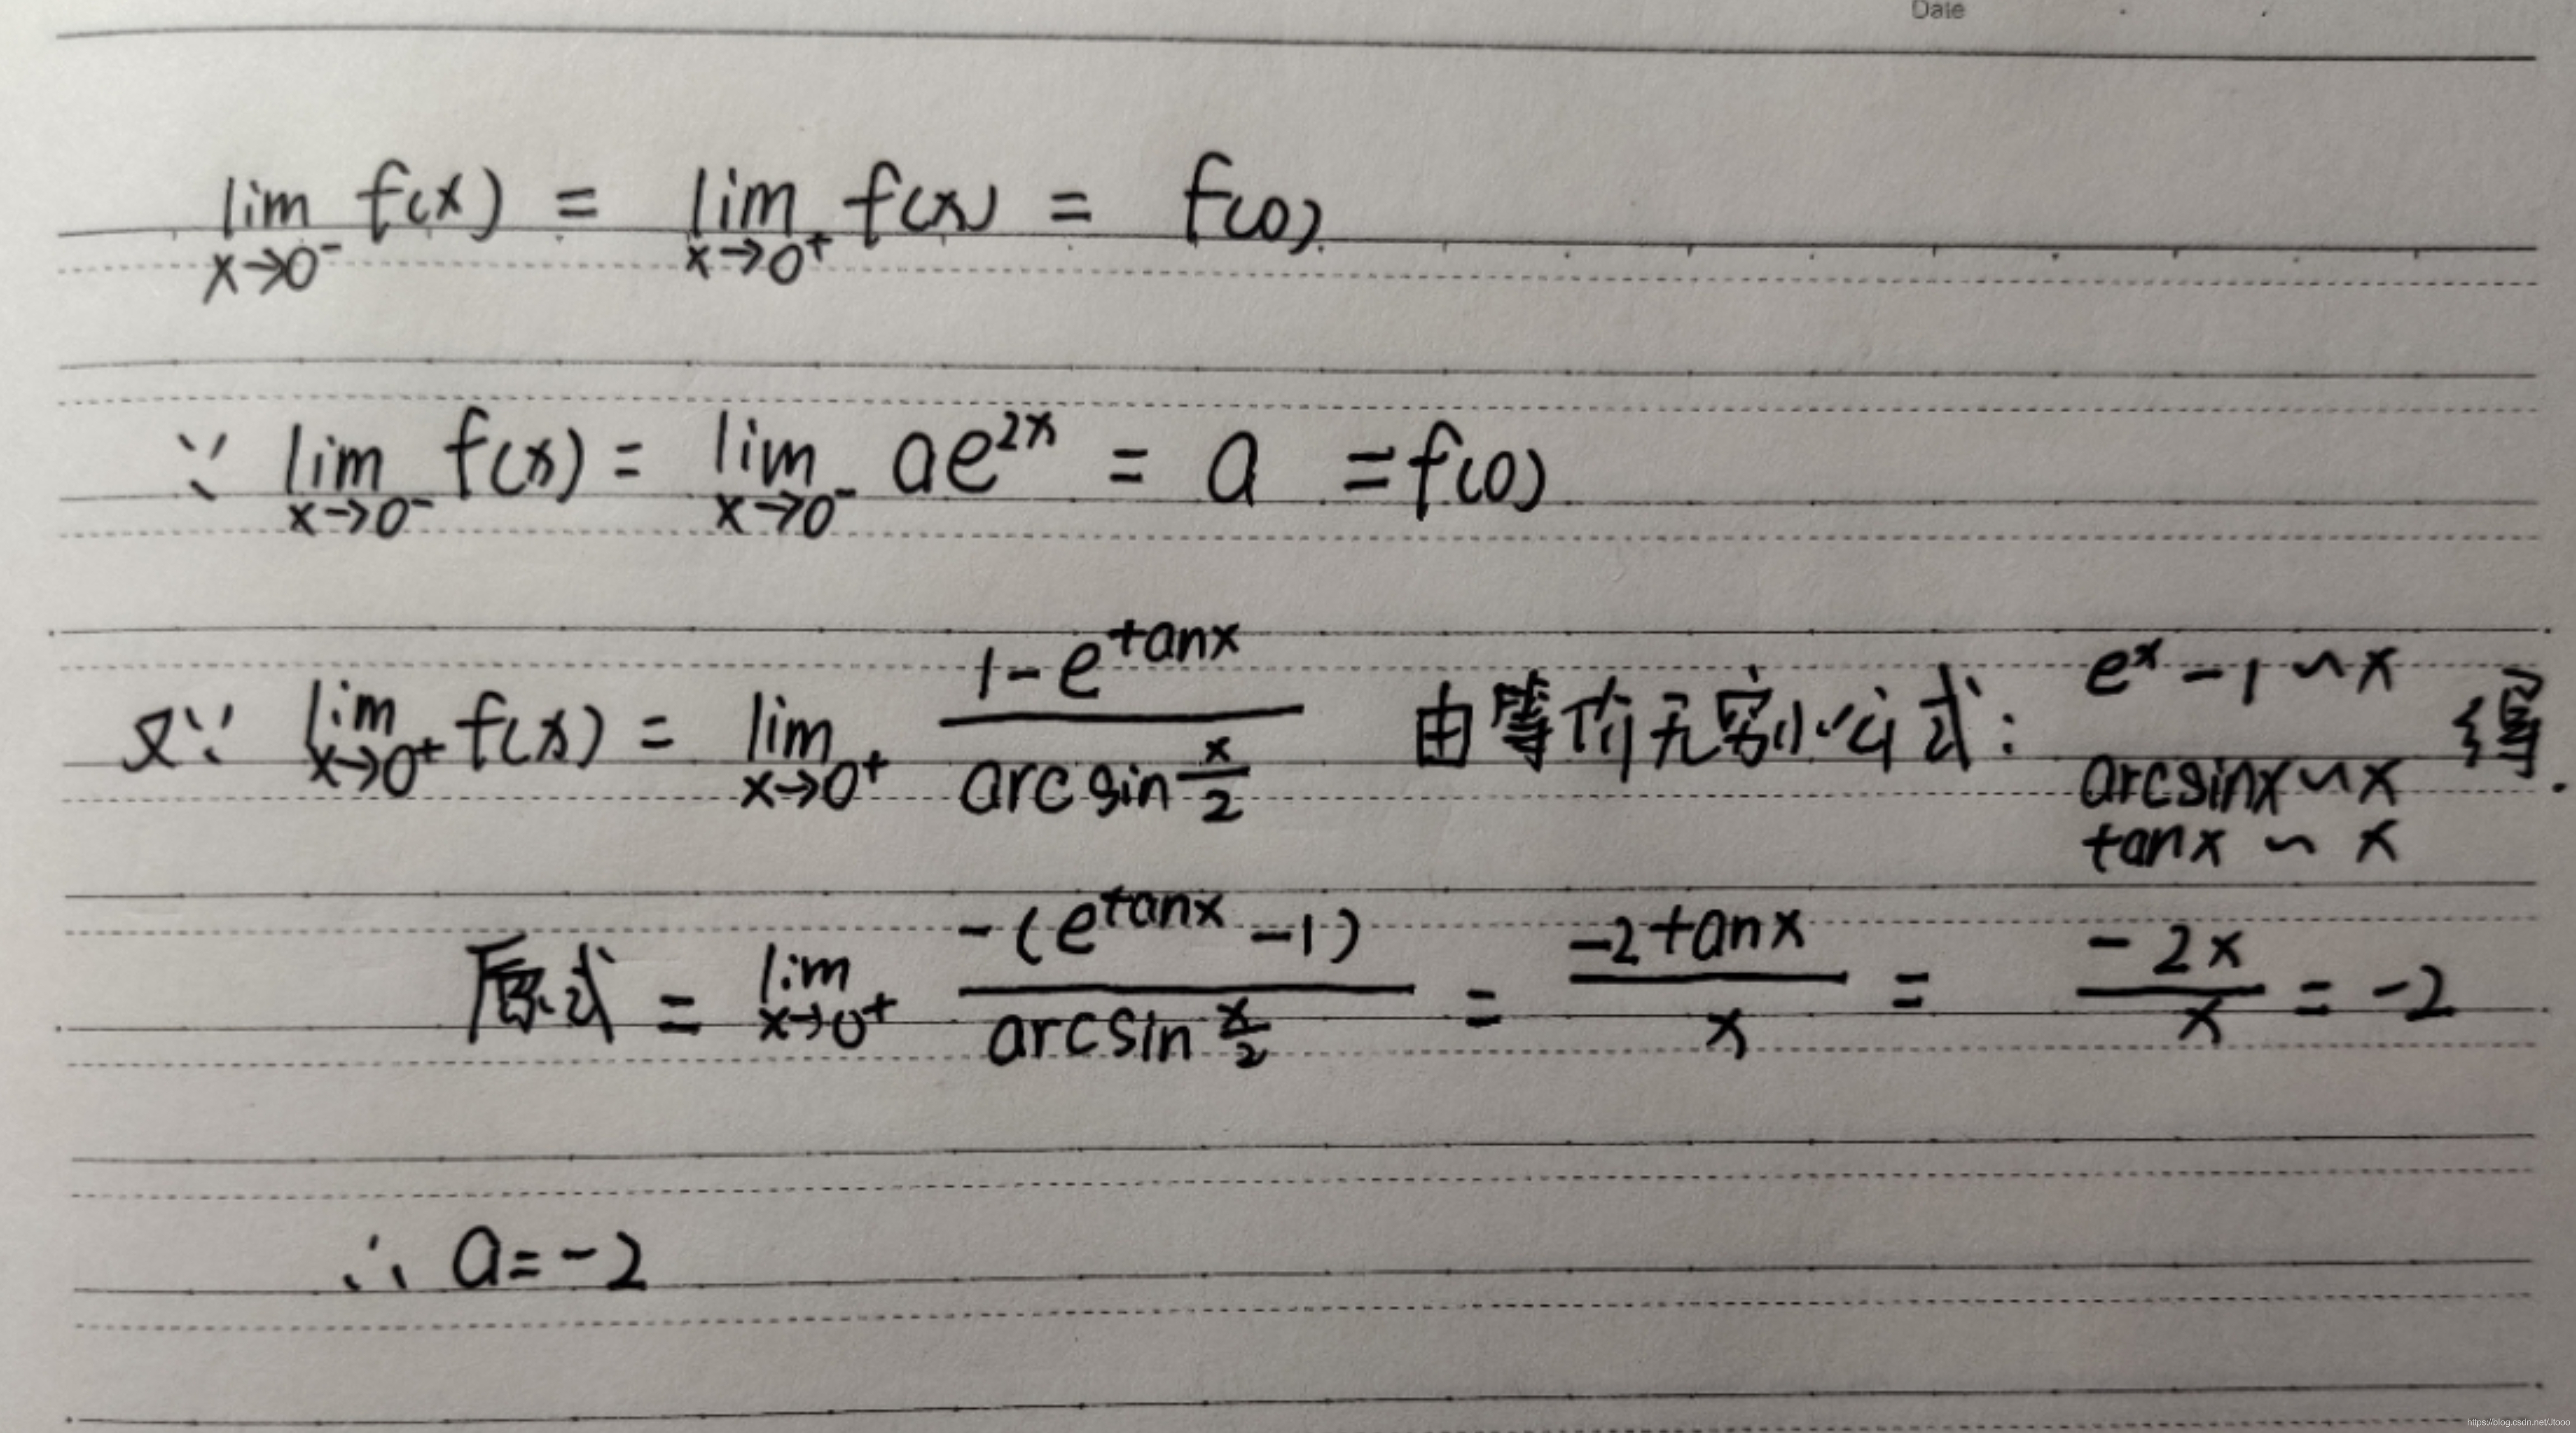 Date
lim x→0⁻ f(x) = lim x→0⁺ f(x) = f(0)
∵ lim x→0⁻ f(x) = lim x→0⁻ ae^{2x} = a = f(0)
又∵ lim x→0⁺ f(x) = lim x→0⁺ (1-e^{tanx})/(arcsin x/2) 由等价无穷小公式: e^x - 1 ~ x arcsinx ~ x tanx ~ x 得.
原式 = lim x→0⁺ (-(e^{tanx} -1))/(arcsin x/2) = (-2tanx)/x = (-2x)/x = -2
∴ a=-2
https://blog.csdn.net/Jtooo